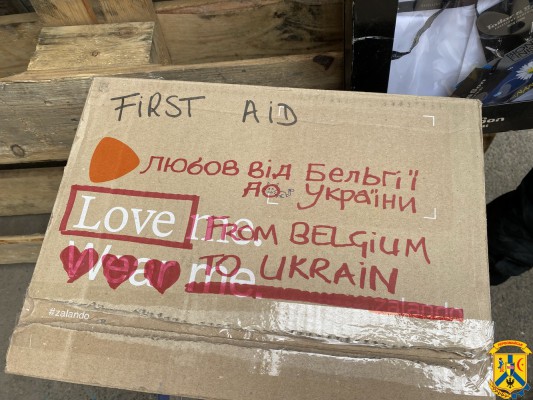 FIRST AID
ЛЮБОВ ВІД БЕЛЬГІЇ
ДО УКРАЇНИ
Love me.
FROM BELGIUM
Wear me.
TO UKRAIN
zalando
#zalando